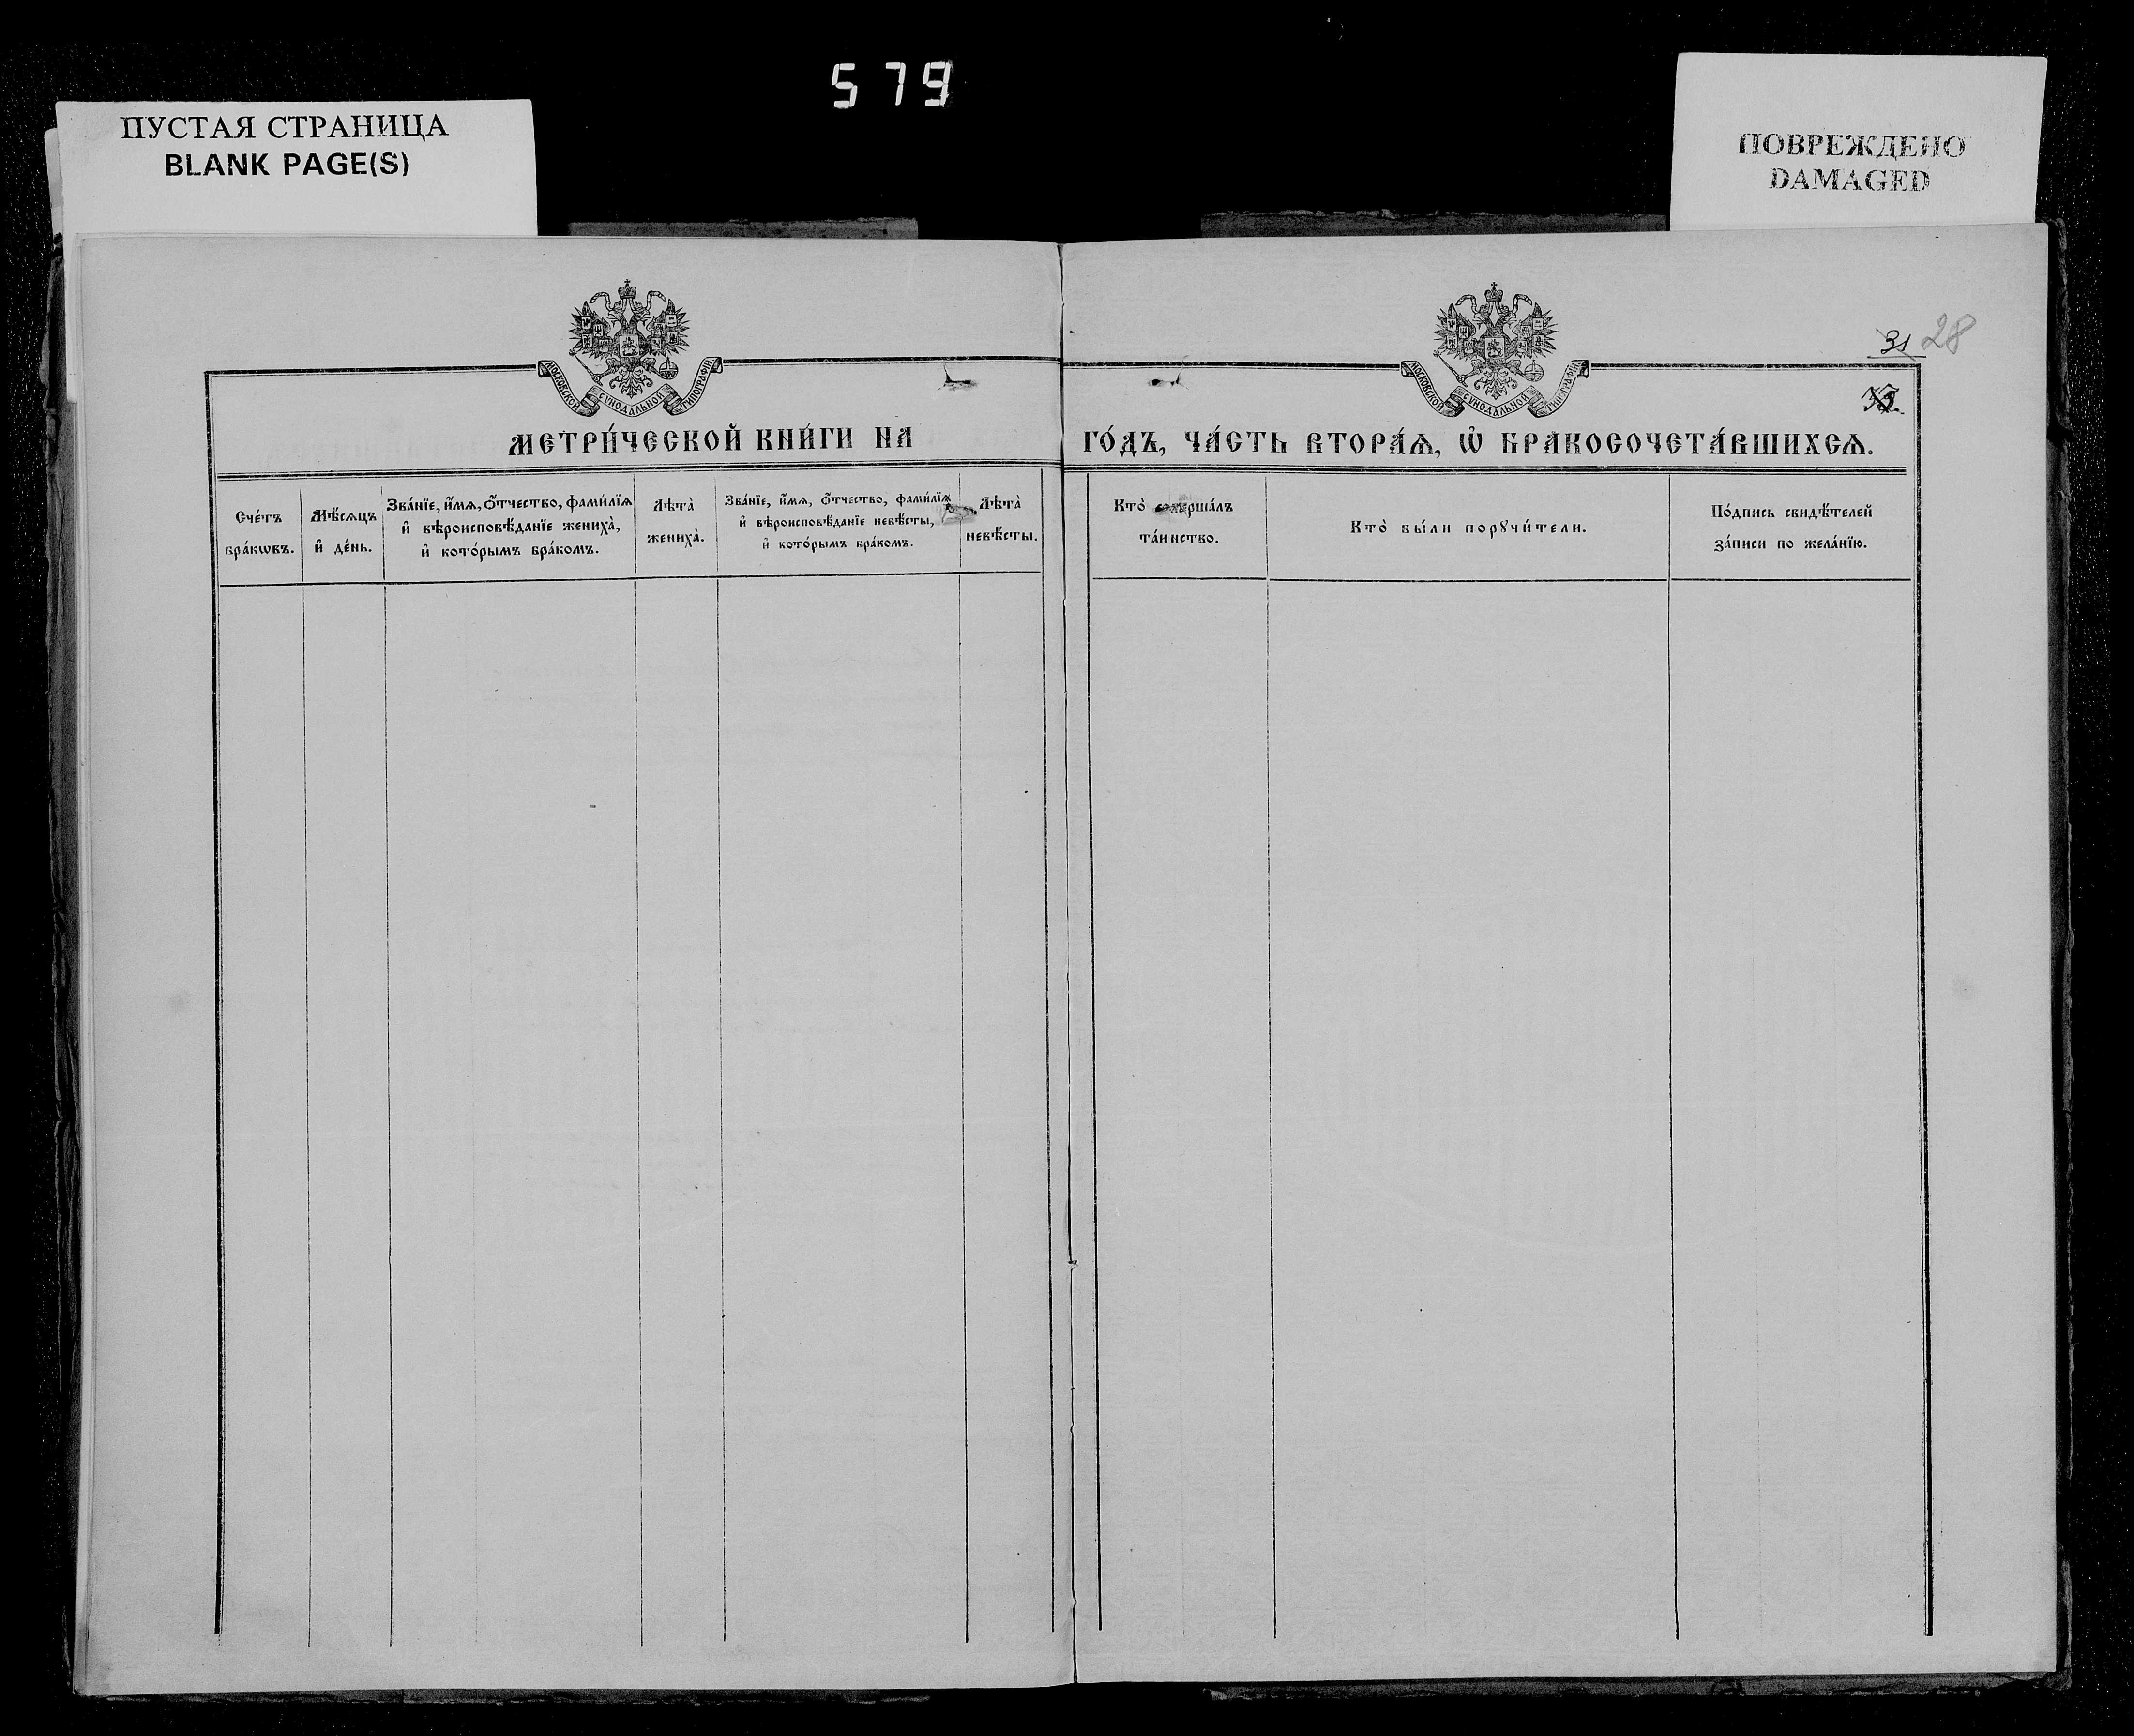 579
ПУСТАЯ СТРАНИЦА
BLANK PAGE(S)
ПОВРЕЖДЕНО
DAMAGED
МОСКОВСКОЙ СѴНОДАЛЬНОЙ ТИПОГРАФІИ
МОСКОВСКОЙ СѴНОДАЛЬНОЙ ТИПОГРАФІИ
31 28
33.
МЕТРИ́ЧЕСКОЙ КНИ́ГИ НА ГО́ДЪ, ЧА́СТЬ ВТОРА́Ѧ, Ѽ БРАКОСОЧЕТА́ВШИХСѦ.
Сче́тъ
бра́кѡвъ.
Мѣ́сѧцъ
и҆ де́нь.
Зва́нїе, и҆́мѧ, ѻ҆́тчество, фами́лїѧ
и҆ вѣроисповѣ́данїе жениха̀,
и҆ кото́рымъ бра́комъ.
Лѣта̀
жениха̀.
Зва́нїе, и҆́мѧ, ѻ҆́тчество, фами́лїѧ
и҆ вѣроисповѣ́данїе невѣ́сты,
и҆ кото́рымъ бра́комъ.
Лѣта̀
невѣ́сты.
Кто̀ соверша́лъ
та́инство.
Кто̀ бы́ли порꙋчи́тели.
По́дпись свидѣ́телей
за́писи по жела́нїю.